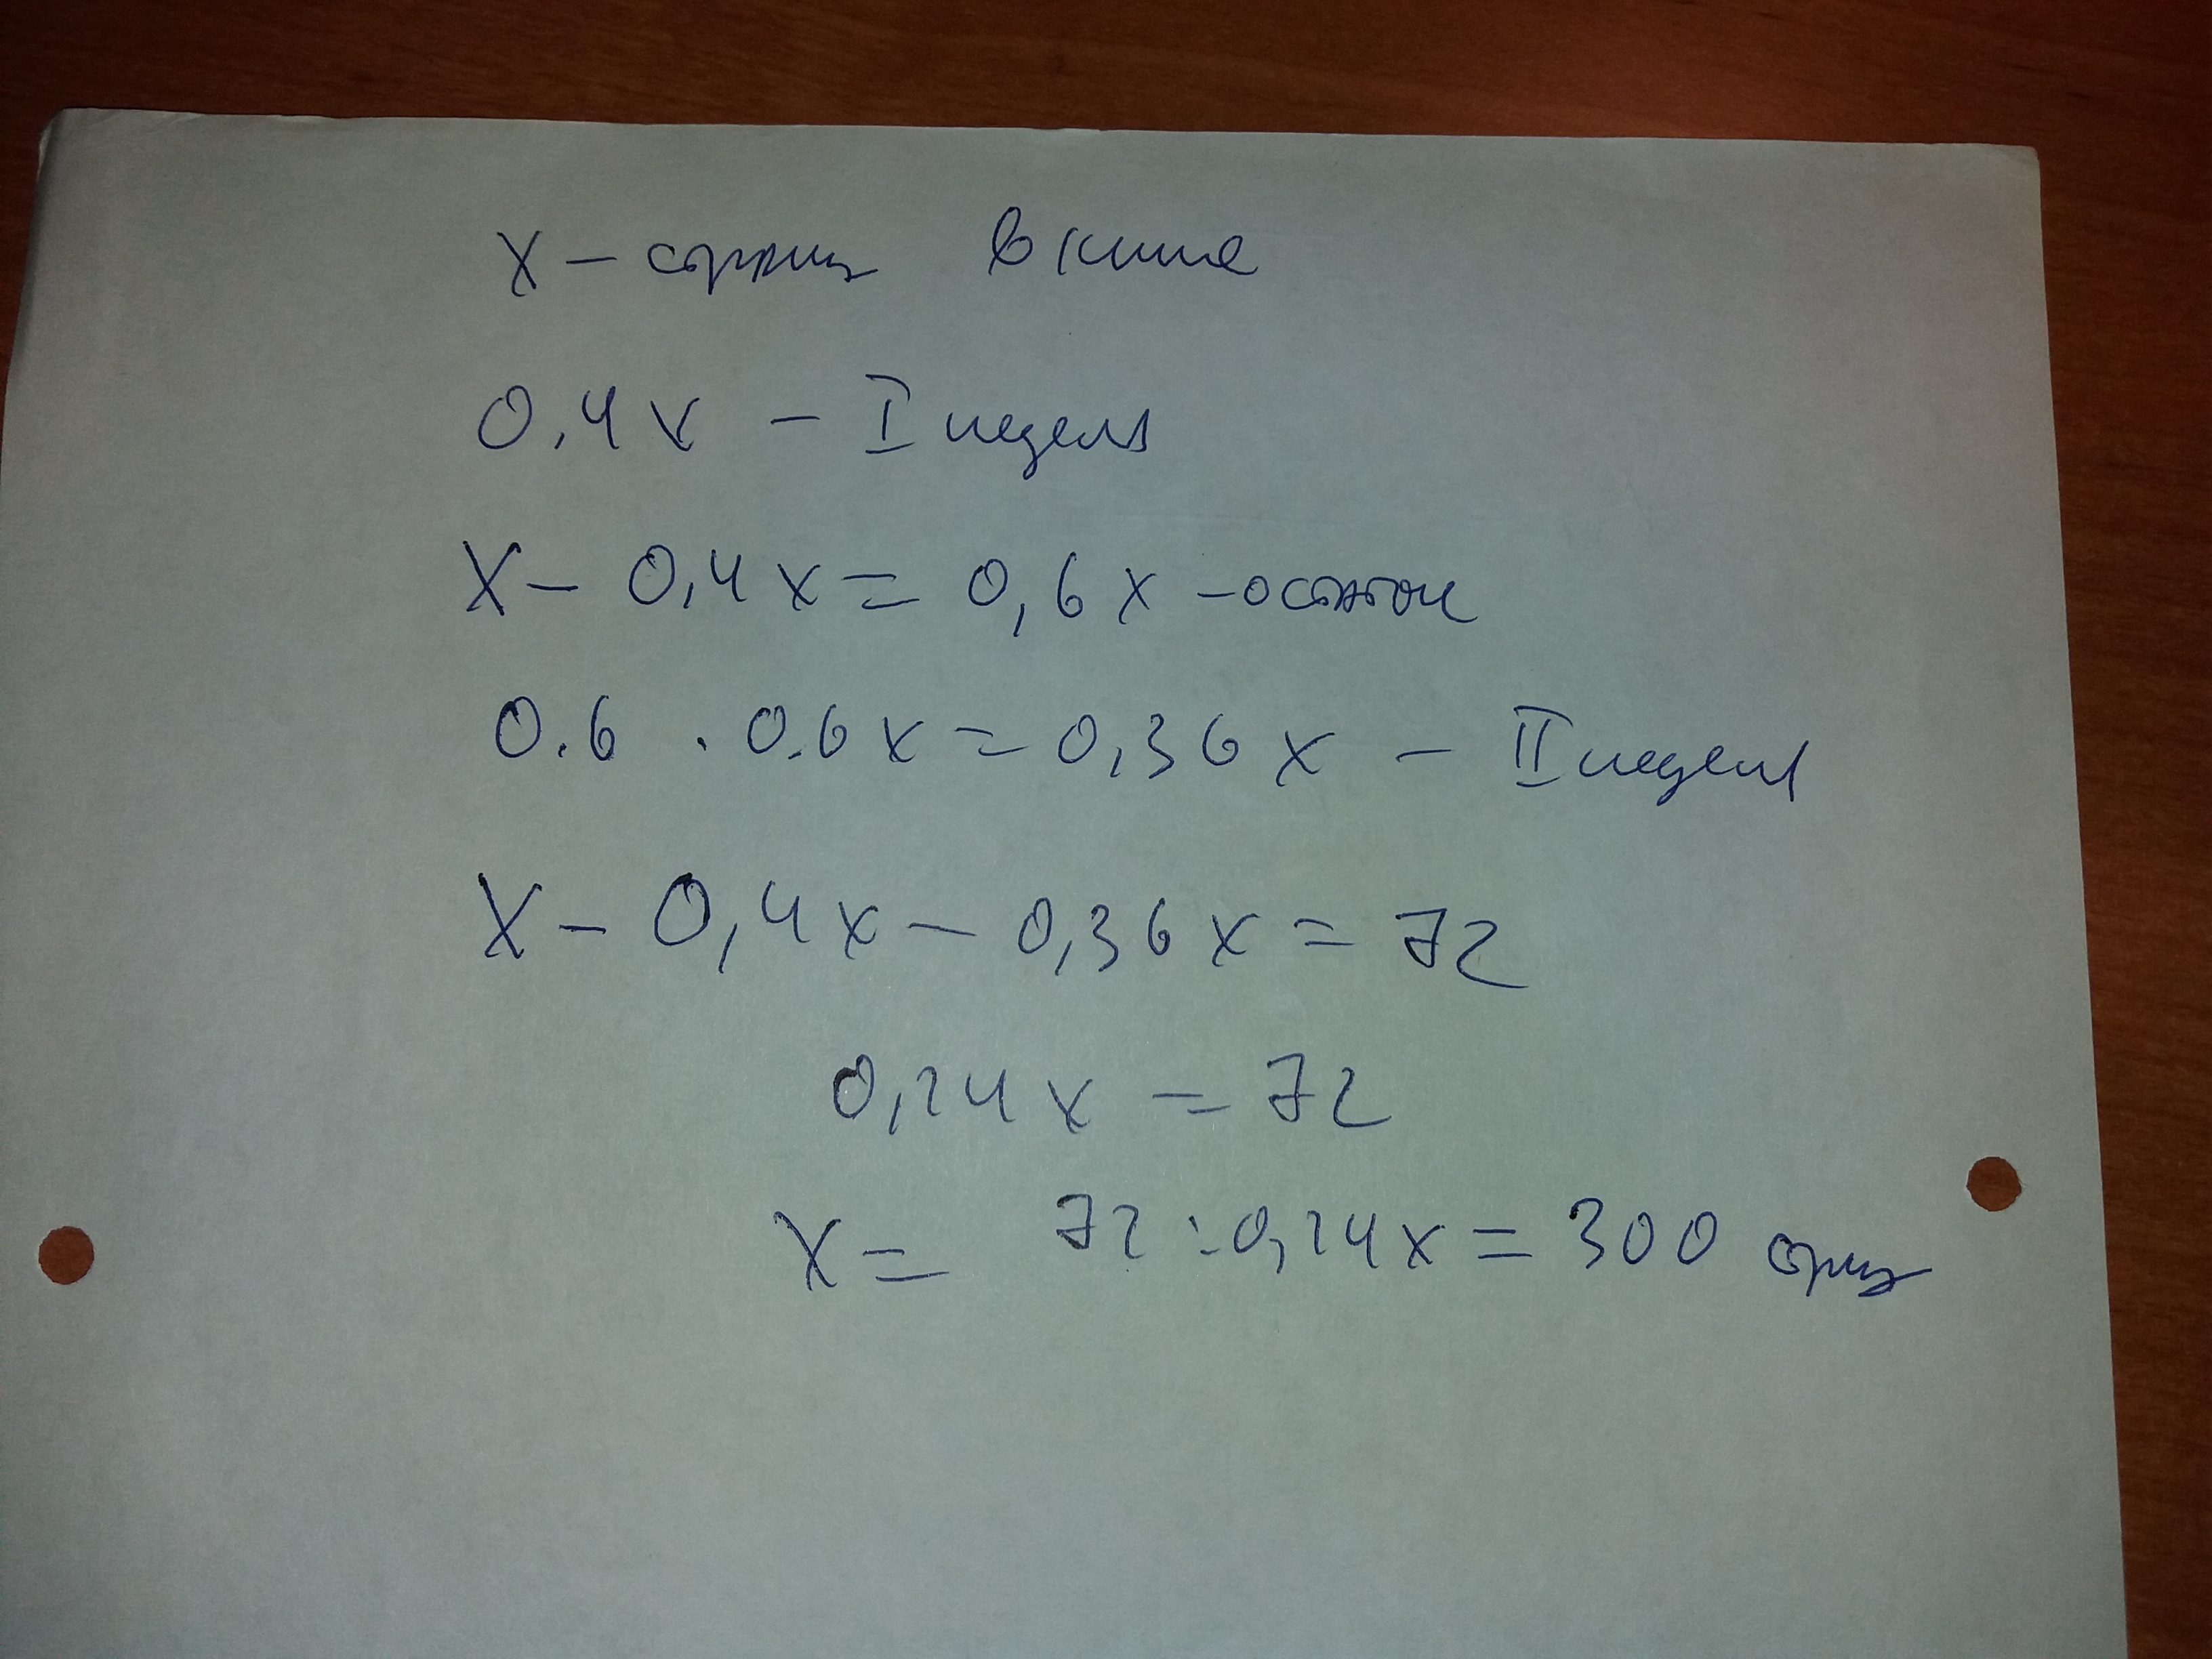 x – страниц в книге
0.4x – I неделя
x – 0,4x = 0,6x – остаток
0.6 · 0.6x = 0,36x – II неделя
x – 0,4x – 0,36x = 72
0,24x = 72
x = 72 : 0,24x = 300 стриц